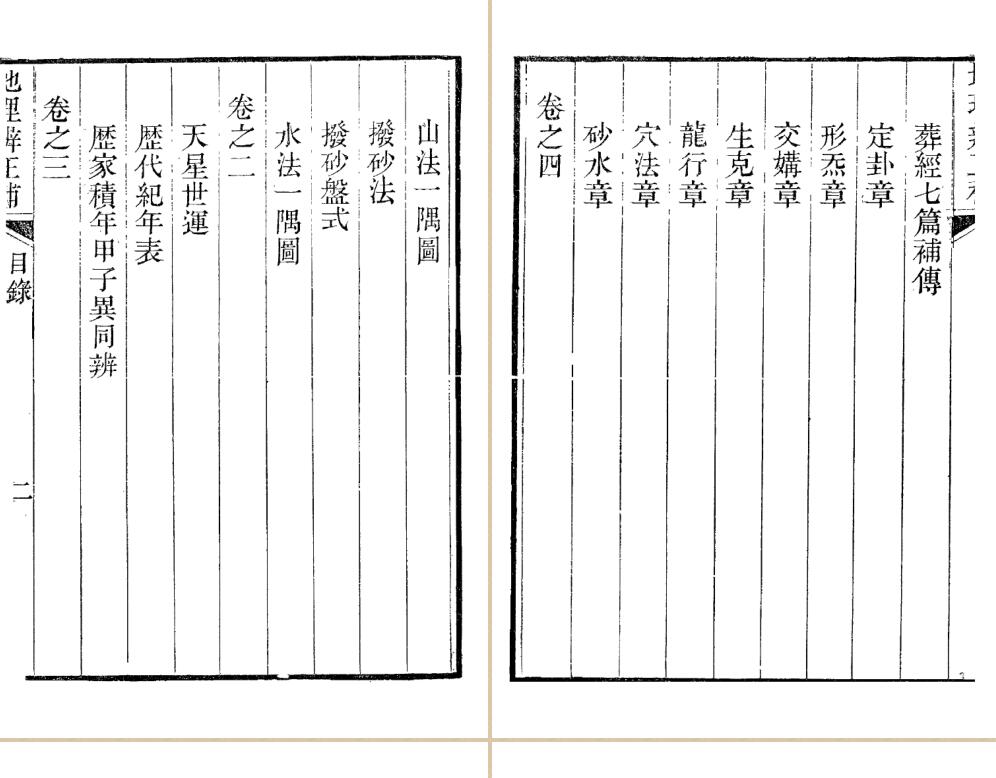 山法一隅圖
撥砂法
撥砂盤式
水法一隅圖
卷之二
天星世運
歴代紀年表
歴家積年甲子異同辨
卷之三
地理辨正補
目錄
二
葬經七篇補傳
定卦章
形炁章
交媾章
生克章
龍行章
穴法章
砂水章
卷之四